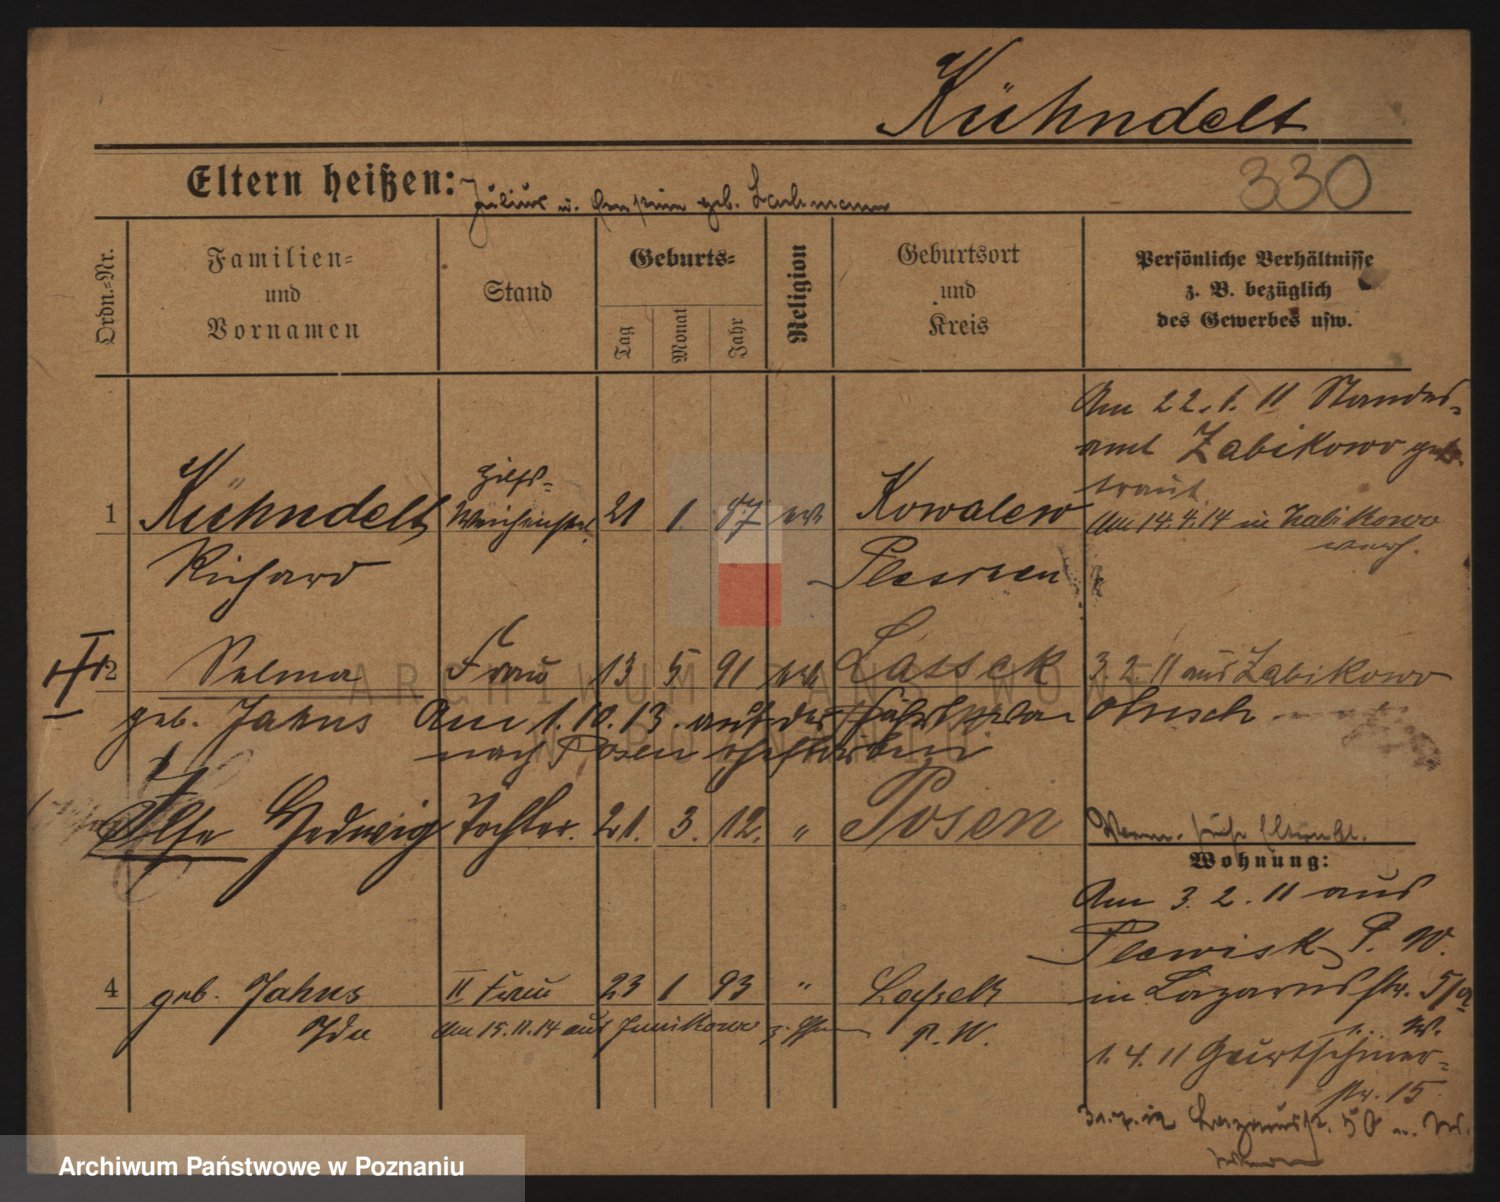 Kühndelt
330
Eltern heißen: Julius u. geb. Lachmann
Ordn.=Nr.
Familien=
und
Vornamen
Stand
Geburts=
Tag
Monat
Jahr
Religion
Geburtsort
und
Kreis
Persönliche Verhältnisse
z. B. bezüglich
des Gewerbes usw.
Am 22. 1. 11 Standes-
amt Zabikowo ge-
traut
1 Kühndelt Hilfs- Weichenstel. 21 1 87 ev Kowalew
Am 14.4.14 in Zabikowo
Richard Pleschen
2 Selma Frau 13 5 91 ev Lassek 3. 2. 11 aus Zabikowo
geb. Jahns Am 1. 10. 13. auf der
nach Posen
Ilse Hedwig Tochter. 21. 3. 12. " Posen
Wohnung:
Am 3. 2. 11 aus
Plewisk P. W.
in Lazarusstr. 5/a
4 geb. Jahns II Frau 23 1 93 " Lassek
Ida Am 15. 11. 14 aus Junikowo P. W.
1. 4. 11 Gurtschiner-
str. 15
Lazarusstr. 50
ARCHIWUM PAŃSTWOWE
W POZNANIU
Archiwum Państwowe w Poznaniu